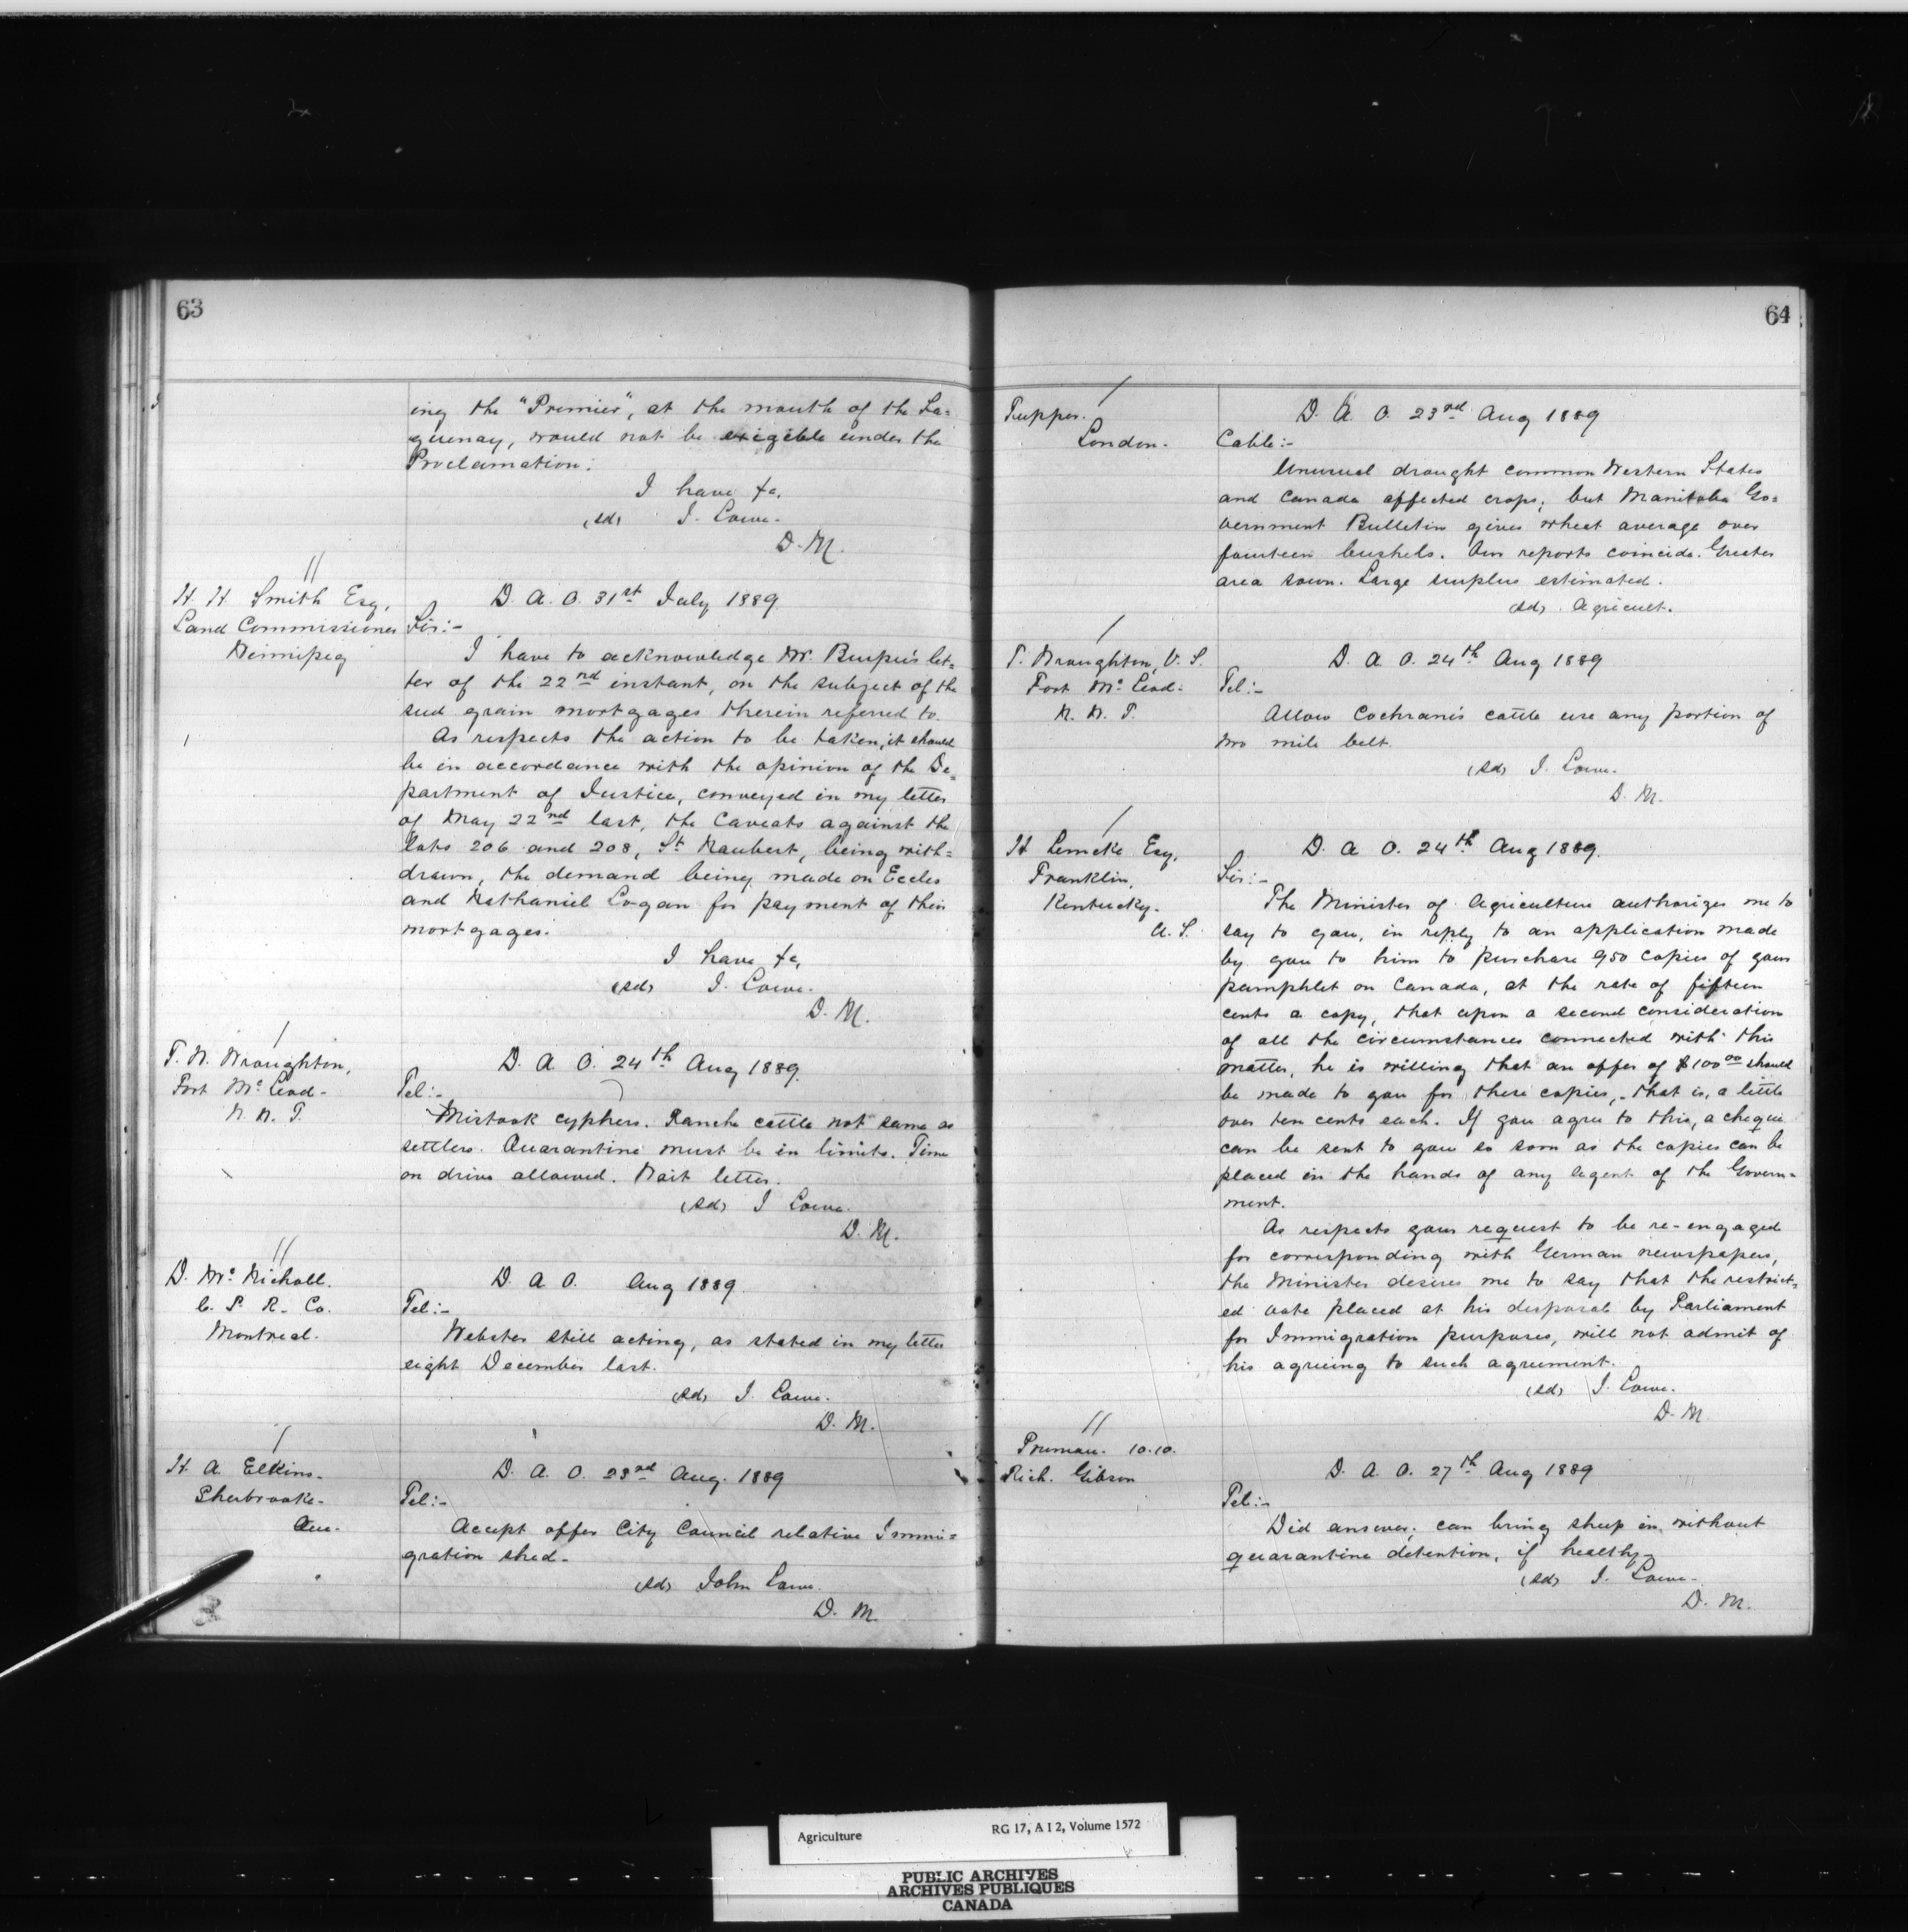 63
ing the "Premier", at the mouth of the Sa=
guenay, would not be exigible under the
Proclamation.
I have &c,
(sd) J. Lowe.
D. M.
H. H. Smith Esq,
Land Commissioner
Winnipeg
D. A. O. 31st July 1889
Sir:-
I have to acknowledge Mr. Burpee's let=
ter of the 22nd instant, on the subject of the
seed grain mortgages therein referred to.
As respects the action to be taken, it should
be in accordance with the opinion of the De=
partment of Justice, conveyed in my letter
of May 22nd last, the Caveats against the
lots 206 and 208, St Naubert, being with=
drawn, the demand being made on Eccles
and Nathaniel Logan for payment of their
mortgages.
I have &c,
(sd) J. Lowe.
D. M.
T. W. Wroughton,
Fort Mc Leod-
N. W. T.
D. A. O. 24th Aug 1889.
Tel:-
Mistook cyphers. Ranche cattle not same as
settlers. Quarantine must be in limits. Time
on drive allowed. Wait letter.
(sd) J Lowe.
D. M.
D. Mc Nicholl.
C. P. R. Co.
Montreal.
D. A. O. Aug 1889.
Tel:-
Webster still acting, as stated in my letter
eight December last.
(sd) J. Lowe.
D. M.
H. A. Elkins-
Sherbrooke-
Que-
D. A. O. 23rd Aug. 1889
Tel:-
Accept offer City Council relative Immi=
gration shed-
(sd) John Lowe.
D. M.
64
Tupper.
London-
D. A. O. 23rd Aug 1889
Cable:-
Unusual drought common Western States
and Canada affected crops; but Manitoba Go=
vernment Bulletin gives wheat average over
fourteen bushels. Our reports coincide. Greater
area sown. Large surplus estimated.
(sd) Agricult.
T. Wroughton, V. S.
Fort Mc Leod-
N. W. T.
D. A. O. 24th Aug 1889
Tel:-
Allow Cochrane's cattle use any portion of
two mile belt.
(sd) J. Lowe.
D. M.
H Lemcke Esq,
Franklin,
Kentucky-
U. S.
D. A. O. 24th Aug 1889.
Sir:-
The Minister of Agriculture authorizes me to
say to you, in reply to an application made
by you to him to purchase 950 copies of your
pamphlet on Canada, at the rate of fifteen
cents a copy, that upon a second consideration
of all the circumstances connected with this
matter, he is willing that an offer of $100 00 should
be made to you for these copies, - that is, a little
over ten cents each. If you agree to this, a cheque
can be sent to you so soon as the copies can be
placed in the hands of any agent of the Govern-
ment.
As respects your request to be re-engaged
for corresponding with German newspapers,
the Minister desires me to say that the restrict-
ed vote placed at his disposal by Parliament
for Immigration purposes, will not admit of
his agreeing to such agreement.
(sd) J. Lowe.
D. M.
10.10.
Rich. Gibson
D. A. O. 27th Aug 1889
Tel:-
Did answer; can bring sheep in, without
quarantine detention, if healthy-
(sd) J. Lowe-
D. M.
Agriculture RG 17, A I 2, Volume 1572
PUBLIC ARCHIVES
ARCHIVES PUBLIQUES
CANADA